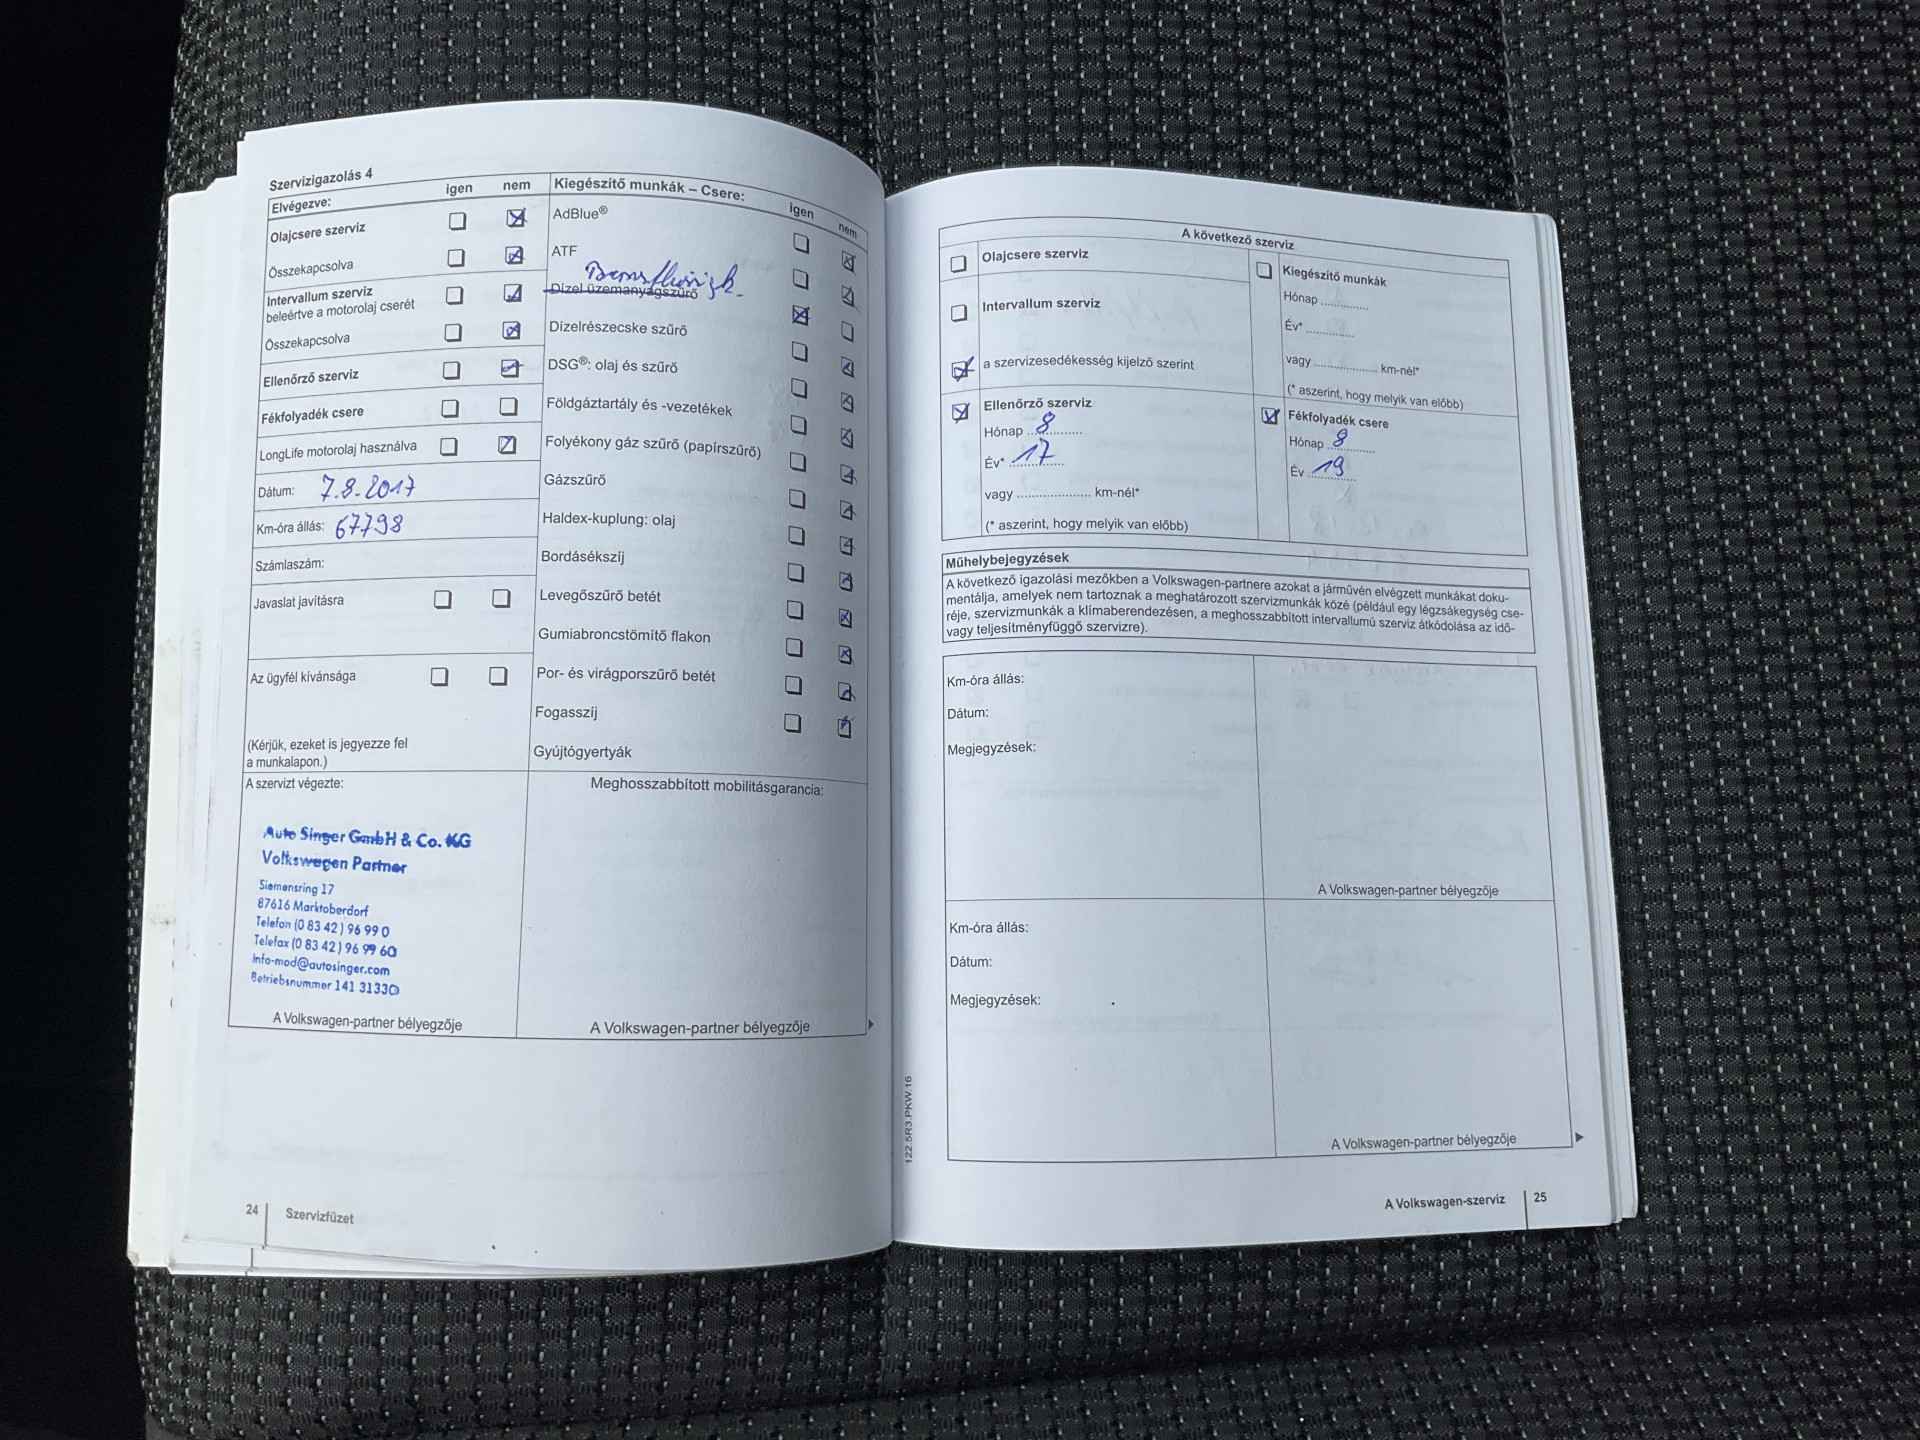 Szervizigazolás 4
Elvégezve: igen nem
Olajcsere szerviz
Összekapcsolva
Intervallum szerviz
beleértve a motorolaj cserét
Összekapcsolva
Ellenőrző szerviz
Fékfolyadék csere
LongLife motorolaj használva
Dátum: 7.8.2017
Km-óra állás: 67798
Számlaszám:
Javaslat javításra
Az ügyfél kívánsága
(Kérjük, ezeket is jegyezze fel
a munkalapon.)
Kiegészítő munkák – Csere: igen nem
AdBlue®
ATF
Dízel üzemanyagszűrő
Dízelrészecske szűrő
DSG®: olaj és szűrő
Földgáztartály és -vezetékek
Folyékony gáz szűrő (papírszűrő)
Gázszűrő
Haldex-kuplung: olaj
Bordásékszíj
Levegőszűrő betét
Gumiabroncstömítő flakon
Por- és virágporszűrő betét
Fogasszíj
Gyújtógyertyák
A szervizt végezte:
Auto Singer GmbH & Co. KG
Volkswagen Partner
Siemensring 17
87616 Marktoberdorf
Telefon (0 83 42) 96 99 0
Telefax (0 83 42) 96 99 60
Info-mod@autosinger.com
Betriebsnummer 141 31330
A Volkswagen-partner bélyegzője
Meghosszabbított mobilitásgarancia:
A Volkswagen-partner bélyegzője
24 Szervizfüzet
A következő szerviz
Olajcsere szerviz
Intervallum szerviz
a szervizesedékesség kijelző szerint
Kiegészítő munkák
Hónap ............
Év* ............
vagy ................ km-nél*
(* aszerint, hogy melyik van előbb)
Ellenőrző szerviz
Hónap 8
Év* 17
vagy ................... km-nél*
(* aszerint, hogy melyik van előbb)
Fékfolyadék csere
Hónap 8
Év 19
Műhelybejegyzések
A következő igazolási mezőkben a Volkswagen-partnere azokat a járművén elvégzett munkákat doku-
mentálja, amelyek nem tartoznak a meghatározott szervizmunkák közé (például egy légzsákegység cse-
réje, szervizmunkák a klímaberendezésen, a meghosszabbított intervallumú szerviz átkódolása az idő-
vagy teljesítményfüggő szervizre).
Km-óra állás:
Dátum:
Megjegyzések:
A Volkswagen-partner bélyegzője
Km-óra állás:
Dátum:
Megjegyzések:
A Volkswagen-partner bélyegzője
122.5R3.PKW.16
A Volkswagen-szerviz 25